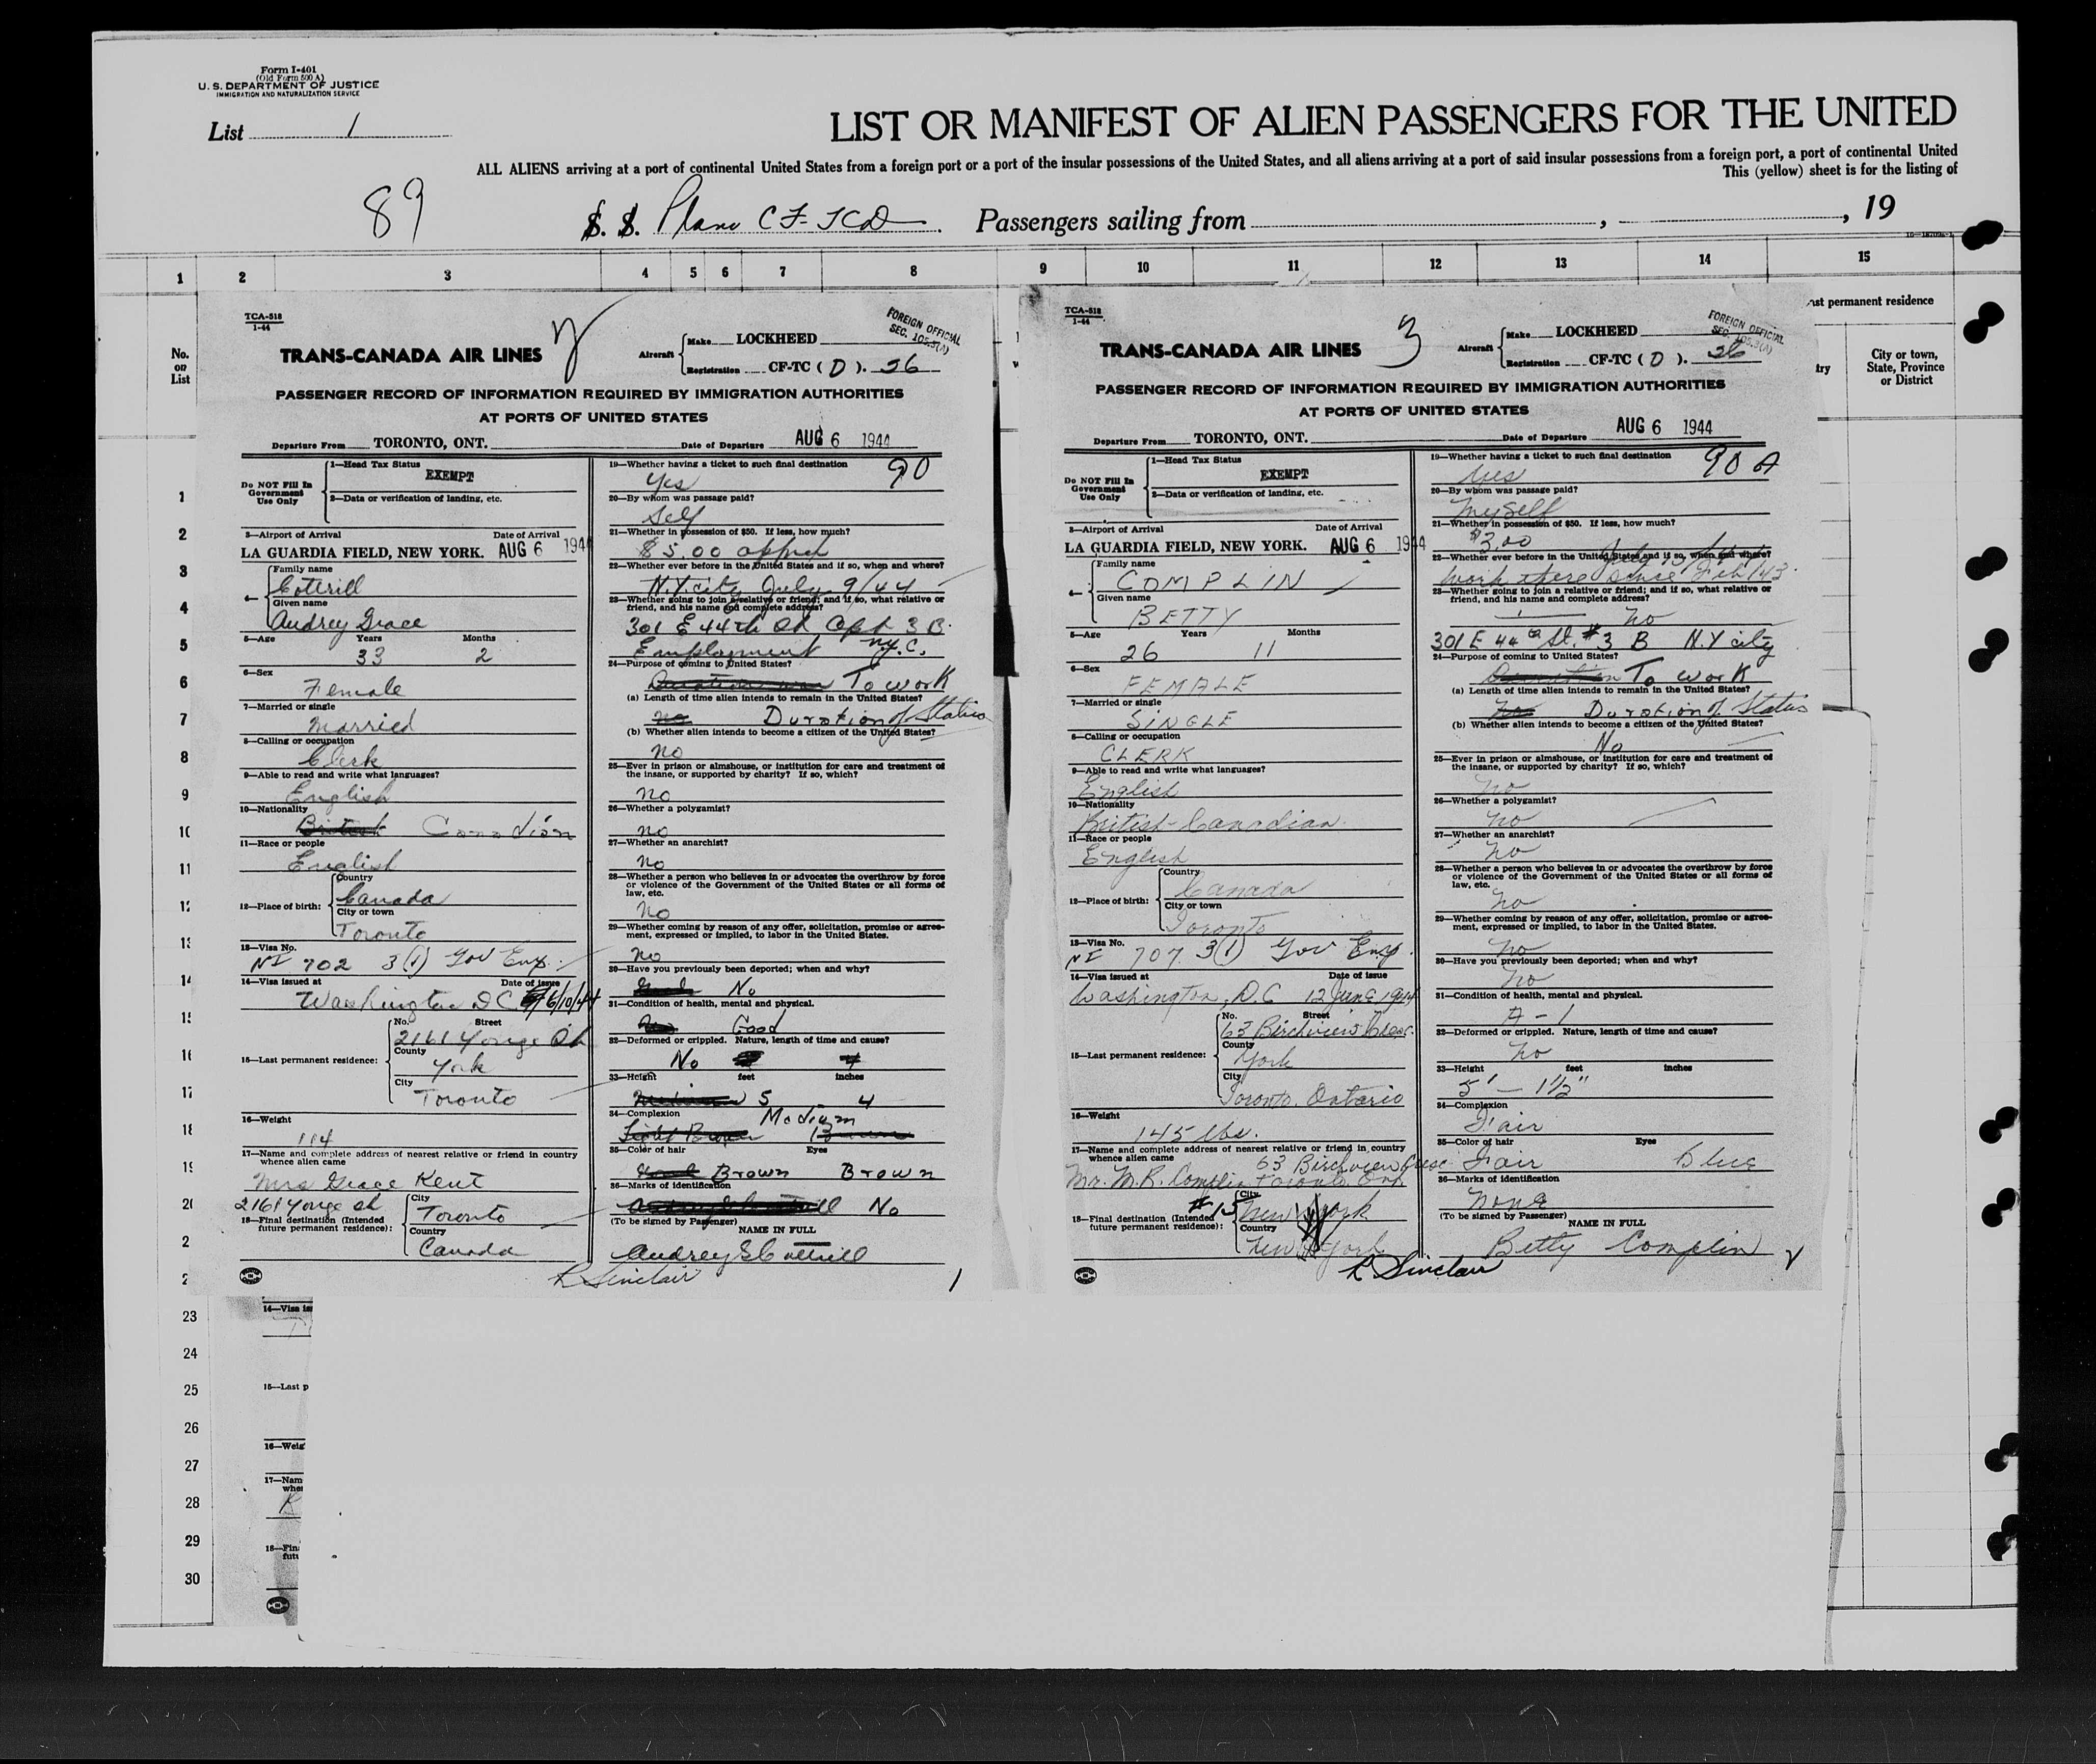 Form I-401
(Old Form 500 A)
U. S. DEPARTMENT OF JUSTICE
IMMIGRATION AND NATURALIZATION SERVICE
List 1
LIST OR MANIFEST OF ALIEN PASSENGERS FOR THE UNITED
ALL ALIENS arriving at a port of continental United States from a foreign port or a port of the insular possessions of the United States, and all aliens arriving at a port of said insular possessions from a foreign port, a port of continental United
This (yellow) sheet is for the listing of
89
S. S. Plane CF-TCD. Passengers sailing from , , 19
1 2 3 4 5 6 7 8 9 10 11 12 13 14 15
No. on List
st permanent residence
try
City or town, State, Province or District
TCA-518
1-44
2
TRANS-CANADA AIR LINES
Aircraft
Make LOCKHEED
Registration CF-TC ( D ). 26
FOREIGN OFFICIAL
SEC. 105.3(A)
PASSENGER RECORD OF INFORMATION REQUIRED BY IMMIGRATION AUTHORITIES
AT PORTS OF UNITED STATES
Departure From TORONTO, ONT. Date of Departure AUG 6 1944
Do NOT Fill In Government Use Only
1—Head Tax Status
EXEMPT
2—Data or verification of landing, etc.
3—Airport of Arrival Date of Arrival
LA GUARDIA FIELD, NEW YORK. AUG 6 1944
4—
Family name
Cotterill
Given name
Audrey Grace
5—Age Years Months
33 2
6—Sex
Female
7—Married or single
Married
8—Calling or occupation
Clerk
9—Able to read and write what languages?
English
10—Nationality
British Canadian
11—Race or people
English
12—Place of birth:
Country
Canada
City or town
Toronto
13—Visa No.
NI 702 3(1) Gov Emp.
14—Visa issued at Date of issue
Washington DC 6/10/44
15—Last permanent residence:
No. Street
2161 Yonge St
County
York
City
Toronto
16—Weight
114
17—Name and complete address of nearest relative or friend in country
whence alien came
Mrs Grace Kent
2161 Yonge st
18—Final destination (Intended
future permanent residence):
City
Toronto
Country
Canada
19—Whether having a ticket to such final destination 90
Yes
20—By whom was passage paid?
Self
21—Whether in possession of $50. If less, how much?
$5.00
22—Whether ever before in the United States and if so, when and where?
N.Y. city July 9/44
23—Whether going to join a relative or friend; and if so, what relative or
friend, and his name and complete address?
301 E 44th St Apt 3 B.
Employment N.Y.C.
24—Purpose of coming to United States?
To work
(a) Length of time alien intends to remain in the United States?
no Duration of Status
(b) Whether alien intends to become a citizen of the United States?
no
25—Ever in prison or almshouse, or institution for care and treatment of
the insane, or supported by charity? If so, which?
no
26—Whether a polygamist?
no
27—Whether an anarchist?
no
28—Whether a person who believes in or advocates the overthrow by force
or violence of the Government of the United States or all forms of
law, etc.
no
29—Whether coming by reason of any offer, solicitation, promise or agree-
ment, expressed or implied, to labor in the United States.
no
30—Have you previously been deported; when and why?
No
31—Condition of health, mental and physical.
Good
32—Deformed or crippled. Nature, length of time and cause?
No
33—Height feet inches
5 4
34—Complexion Medium
35—Color of hair Eyes
Brown Brown
36—Marks of identification
No
(To be signed by Passenger)
NAME IN FULL
Audrey G Cotterill
R Sinclair 1
TCA-518
1-44
3
TRANS-CANADA AIR LINES
Aircraft
Make LOCKHEED
Registration CF-TC ( D ). 26
FOREIGN OFFICIAL
SEC. 105.3(A)
PASSENGER RECORD OF INFORMATION REQUIRED BY IMMIGRATION AUTHORITIES
AT PORTS OF UNITED STATES
Departure From TORONTO, ONT. Date of Departure AUG 6 1944
Do NOT Fill In Government Use Only
1—Head Tax Status
EXEMPT
2—Data or verification of landing, etc.
3—Airport of Arrival Date of Arrival
LA GUARDIA FIELD, NEW YORK. AUG 6 1944
4—
Family name
COMPLIN
Given name
BETTY
5—Age Years Months
26 11
6—Sex
FEMALE
7—Married or single
SINGLE
8—Calling or occupation
CLERK
9—Able to read and write what languages?
English
10—Nationality
British-Canadian.
11—Race or people
English
12—Place of birth:
Country
Canada
City or town
Toronto
13—Visa No.
NI 707. 3(1) Gov Emp.
14—Visa issued at Date of issue
Washington, D.C 12 June 1944
15—Last permanent residence:
No. Street
63 Birchview Cresc.
County
York
City
Toronto. Ontario
16—Weight
145 lbs.
17—Name and complete address of nearest relative or friend in country
whence alien came 63 Birchview Cresc
Mr. M.R. Complin Toronto Ont
#15
18—Final destination (Intended
future permanent residence):
City
New York
Country
New York
19—Whether having a ticket to such final destination 90 A
Yes
20—By whom was passage paid?
Myself
21—Whether in possession of $50. If less, how much?
$3.00
22—Whether ever before in the United States and if so, when and where?
Work there since Feb/43.
23—Whether going to join a relative or friend; and if so, what relative or
friend, and his name and complete address?
no
301 E 44th St. #3 B N.Y city
24—Purpose of coming to United States?
To work
(a) Length of time alien intends to remain in the United States?
Duration of Status
(b) Whether alien intends to become a citizen of the United States?
No
25—Ever in prison or almshouse, or institution for care and treatment of
the insane, or supported by charity? If so, which?
no
26—Whether a polygamist?
no
27—Whether an anarchist?
no
28—Whether a person who believes in or advocates the overthrow by force
or violence of the Government of the United States or all forms of
law, etc.
no
29—Whether coming by reason of any offer, solicitation, promise or agree-
ment, expressed or implied, to labor in the United States.
no
30—Have you previously been deported; when and why?
no
31—Condition of health, mental and physical.
A-1
32—Deformed or crippled. Nature, length of time and cause?
no
33—Height feet inches
5' — 1½"
34—Complexion
Fair
35—Color of hair Eyes
Fair blue
36—Marks of identification
None
(To be signed by Passenger)
NAME IN FULL
Betty Complin
R Sinclair
1
2
3
4
5
6
7
8
9
10
11
12
13
14
15
16
17
18
19
20
2
2
23
24
25
26
27
28
29
30
14—Visa is
15—Last p
16—Weig
17—Nam
whe
K
18—Fin
futu